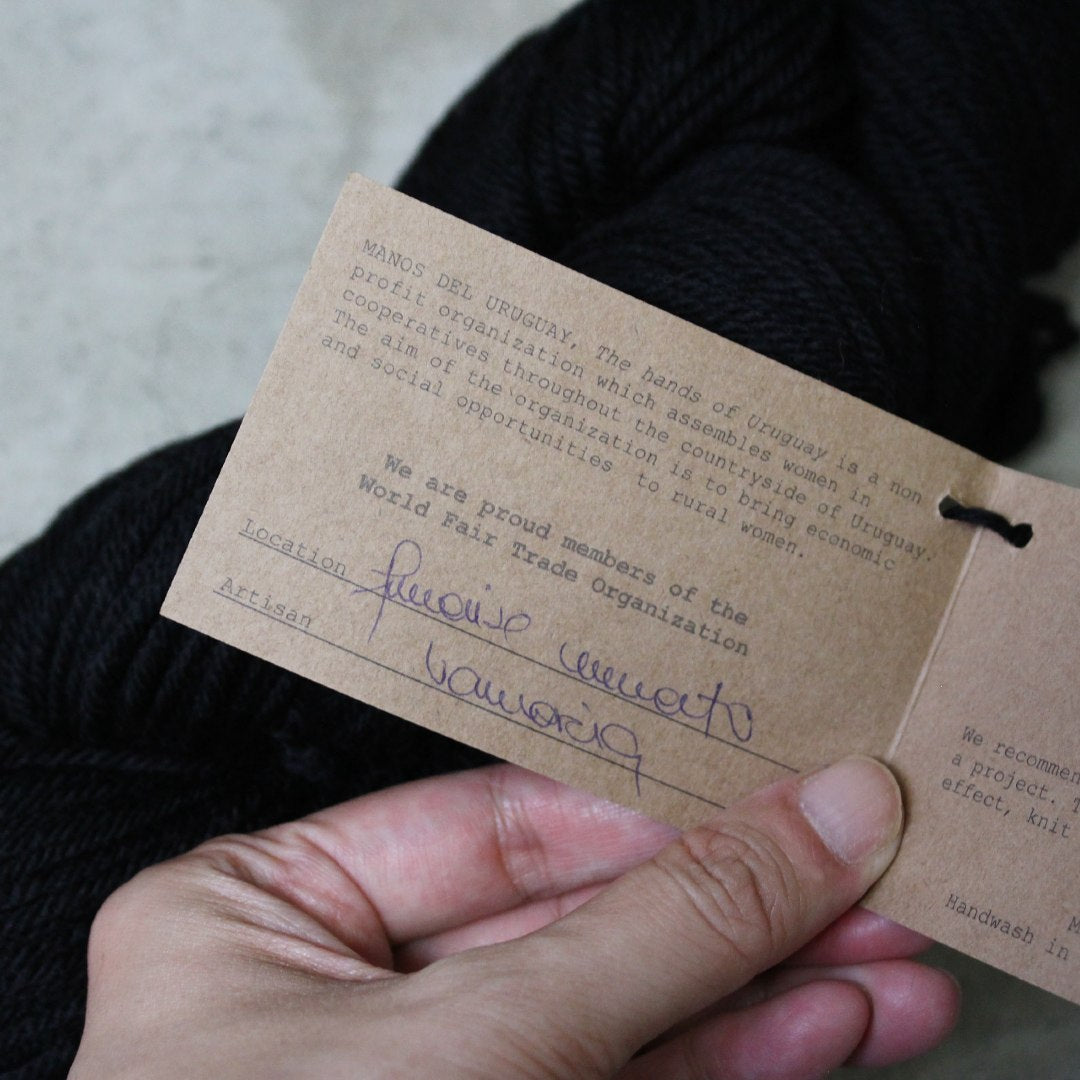 MANOS DEL URUGUAY, The hands of Uruguay is a non
profit organization which assembles women in
cooperatives throughout the countryside of Uruguay.
The aim of the organization is to bring economic
and social opportunities to rural women.
We are proud members of the
World Fair Trade Organization
Location
Artisan
We recommen
a project. T
effect, knit
M
Handwash in